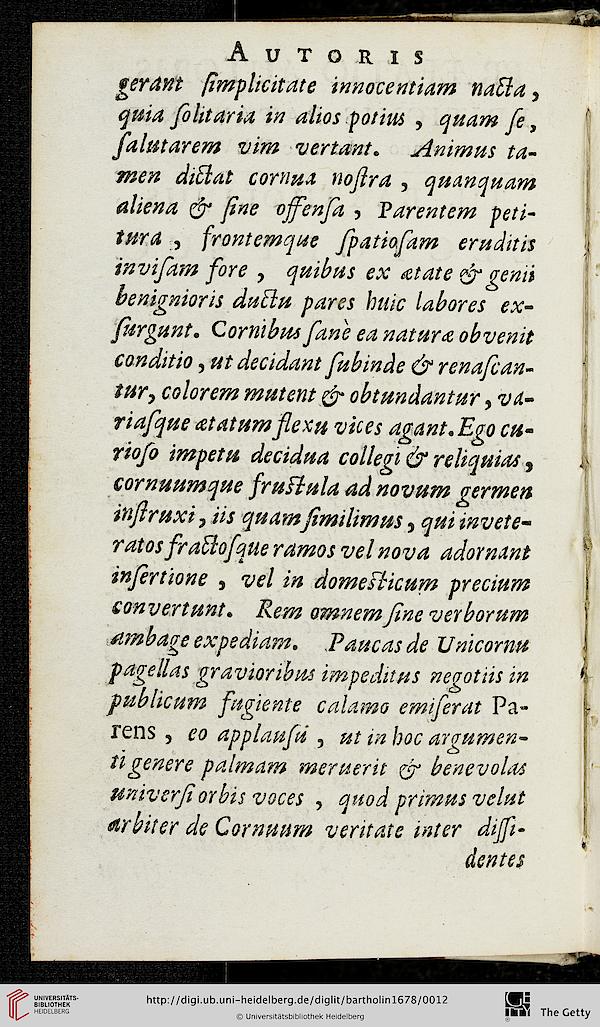 AUTORIS
gerant ſimplicitate innocentiam nacta,
quia ſolitaria in alios potius , quam ſe,
ſalutarem vim vertant. Animus ta-
men dictat cornua noſtra , quanquam
aliena & ſine offenſa , Parentem peti-
tura , frontemque ſpatioſam eruditis
inviſam fore , quibus ex ætate & genii
benignioris ductu pares huic labores ex-
ſurgunt. Cornibus ſanè ea naturæ obvenit
conditio, ut decidant ſubinde & renaſcan-
tur, colorem mutent & obtundantur, va-
riaſque ætatum flexu vices agant. Ego cu-
rioſo impetu decidua collegi & reliquias,
cornuumque fruſtula ad novum germen
inſtruxi, iis quam ſimilimus, qui invete-
ratos fractoſque ramos vel nova adornant
inſertione , vel in domeſticum precium
convertunt. Rem omnem ſine verborum
ambage expediam. Paucas de Unicornu
pagellas gravioribus impeditus negotiis in
publicum fugiente calamo emiſerat Pa-
rens , eo applauſu , ut in hoc argumen-
ti genere palmam meruerit & benevolas
univerſi orbis voces , quod primus velut
arbiter de Cornuum veritate inter diſſi-
dentes
UNIVERSITÄTS-
BIBLIOTHEK
HEIDELBERG
http://digi.ub.uni-heidelberg.de/diglit/bartholin1678/0012
© Universitätsbibliothek Heidelberg
The Getty